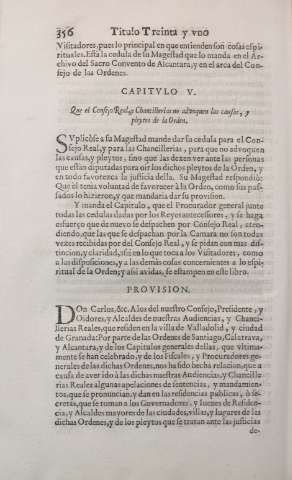 356 Titulo Treinta y vno
Visitadores, pues lo principal en que entienden son cosas espi-
rituales. Está la cedula de su Magestad que lo manda en el Ar-
chivo del Sacro Convento de Alcantara, y en el arca del Con-
sejo de las Ordenes.
CAPITVLO V.
Que el Consejo Real, y Chancillerias no advoquen las causas, y
pleytos de la Orden.
SVplicòse a su Magestad mande dar su cedula para el Con-
sejo Real, y para las Chancillerias, para que no advoquen
las causas, y pleytos, sino que las dexen ver ante las personas
que estàn diputadas para oir los dichos pleytos de la Orden, y
en todo favorezca la justicia della. Su Magestad respondiò:
Que èl tenia voluntad de favorecer à la Orden, como sus pas-
sados lo hizieron, y que mandaria dar su provision.
Y manda el Capitulo, que el Procurador general junte
todas las cedulas dadas por los Reyes antecessores, y se haga
esfuerço que de nuevo se despachen por Consejo Real, aten-
diendo, que las que se despachan por la Camara no son todas
vezes recibidas por del Consejo Real, y se pidan con mas dis-
tincion, y claridad, assi en lo que toca a los Visitadores, como
a las disposiciones, y a las demàs cosas concernientes a lo espi-
ritual de la Orden; y assi avidas, se estampen en este libro.
PROVISION.
DOn Carlos, &c. A los del nuestro Consejo, Presidente, y
Oidores, y Alcaldes de nuestras Audiencias, y Chanci-
llerias Reales, que residen en la villa de Valladolid, y ciudad
de Granada: Por parte de las Ordenes de Santiago, Calatrava,
y Alcantara, y de los Capitulos generales dellas, que vltima-
mente se han celebrado, y de los Fiscales, y Procuradores ge-
nerales de las dichas Ordenes, nos ha sido hecha relacion, que a
causa de aver ido à las dichas nuestras Audiencias, y Chancille
rias Reales algunas apelaciones de sentencias, y mandamien-
tos, que se pronuncian, y dan en las residencias publicas, ò se-
cretas, que se toman a los Governadores, y Iuezes de Residen-
cia, y Alcaldes mayores de las ciudades, villas, y lugares de las
dichas Ordenes, y de los pleytos que se tratan ante las justicias
de-